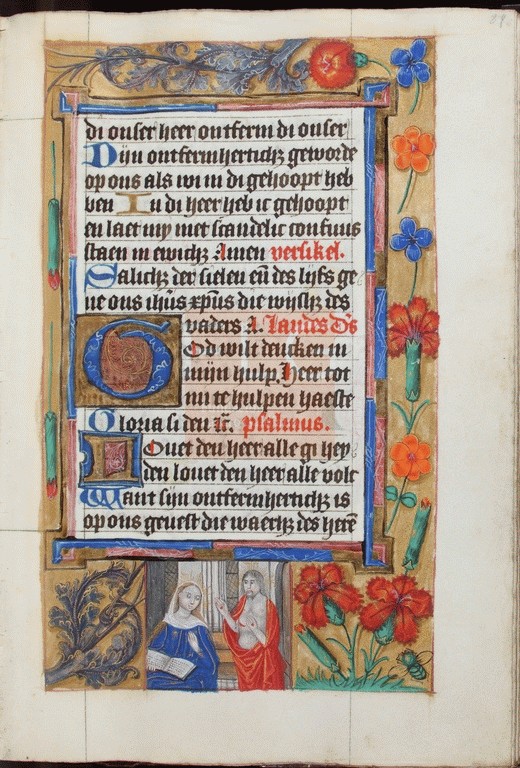 di onser heer ontferm di onser
Dijn ontfermherticheit geworde
op ons als wi in di gehoopt heb
ben In di heer heb ic gehoopt
en laet my niet scandelic confuus
staen in ewicheit Amen versikel.
Salicheit der sielen eñ des lijfs ge
ue ons ihūs xp̄us die wijsheit des
vaders A. Laudes D's
God wilt dencken in
mijn hulp. Heer tot
mi te hulpen haeste
Gloria si den psalmus.
Louet den heer alle gi hey
den louet den heer alle volc
Want sijn ontfermherticheit is
op ons geuest die waerheit des herē